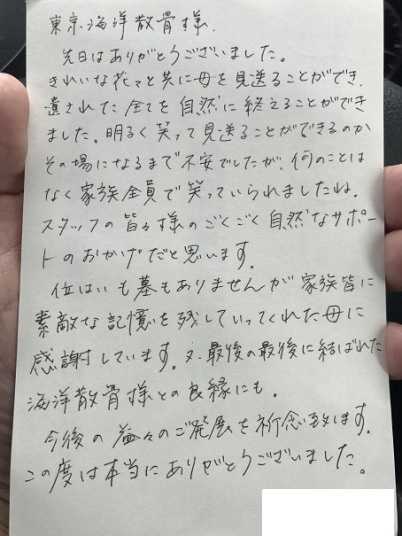 東京海洋散骨様.
先日はありがとうございました。
きれいな花々と共に母を見送ることができ、
遺された全てを自然に終えることができ
ました。明るく笑って見送ることができるのか
その場になるまで不安でしたが、何のことは
なく家族全員で笑っていられましたね。
スタッフの皆々様のごくごく自然なサポー
トのおかげだと思います。
位はいも墓もありませんが家族皆に
素敵な記憶を残していってくれた母に
感謝しています。又、最後の最後に結ばれた
海洋散骨様との良縁にも。
今後の益々のご発展を祈念致します。
この度は本当にありがとうございました。